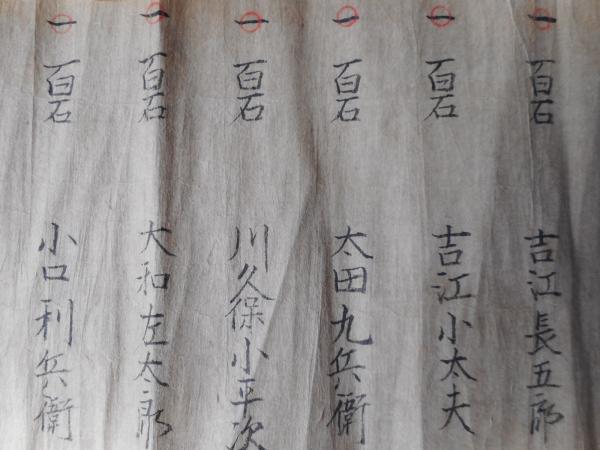 一 百石 吉江長五郎
一 百石 吉江小太夫
一 百石 太田九兵衛
一 百石 川久保小平次
一 百石 大和左太郎
一 百石 小口利兵衛